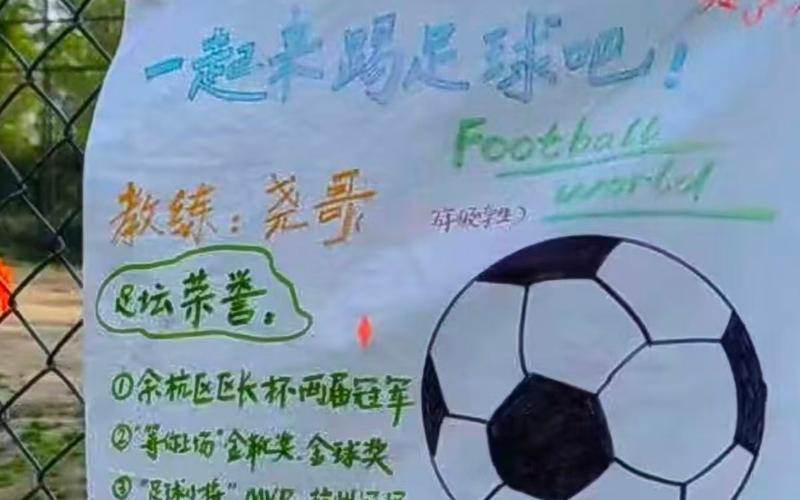 一起来踢足球吧!
Football
world
教练:尧哥
五年级学生)
足坛荣誉:
①余杭区区长杯两届冠军
②"等你上场"金靴奖、金球奖
③"足球小将"MVP